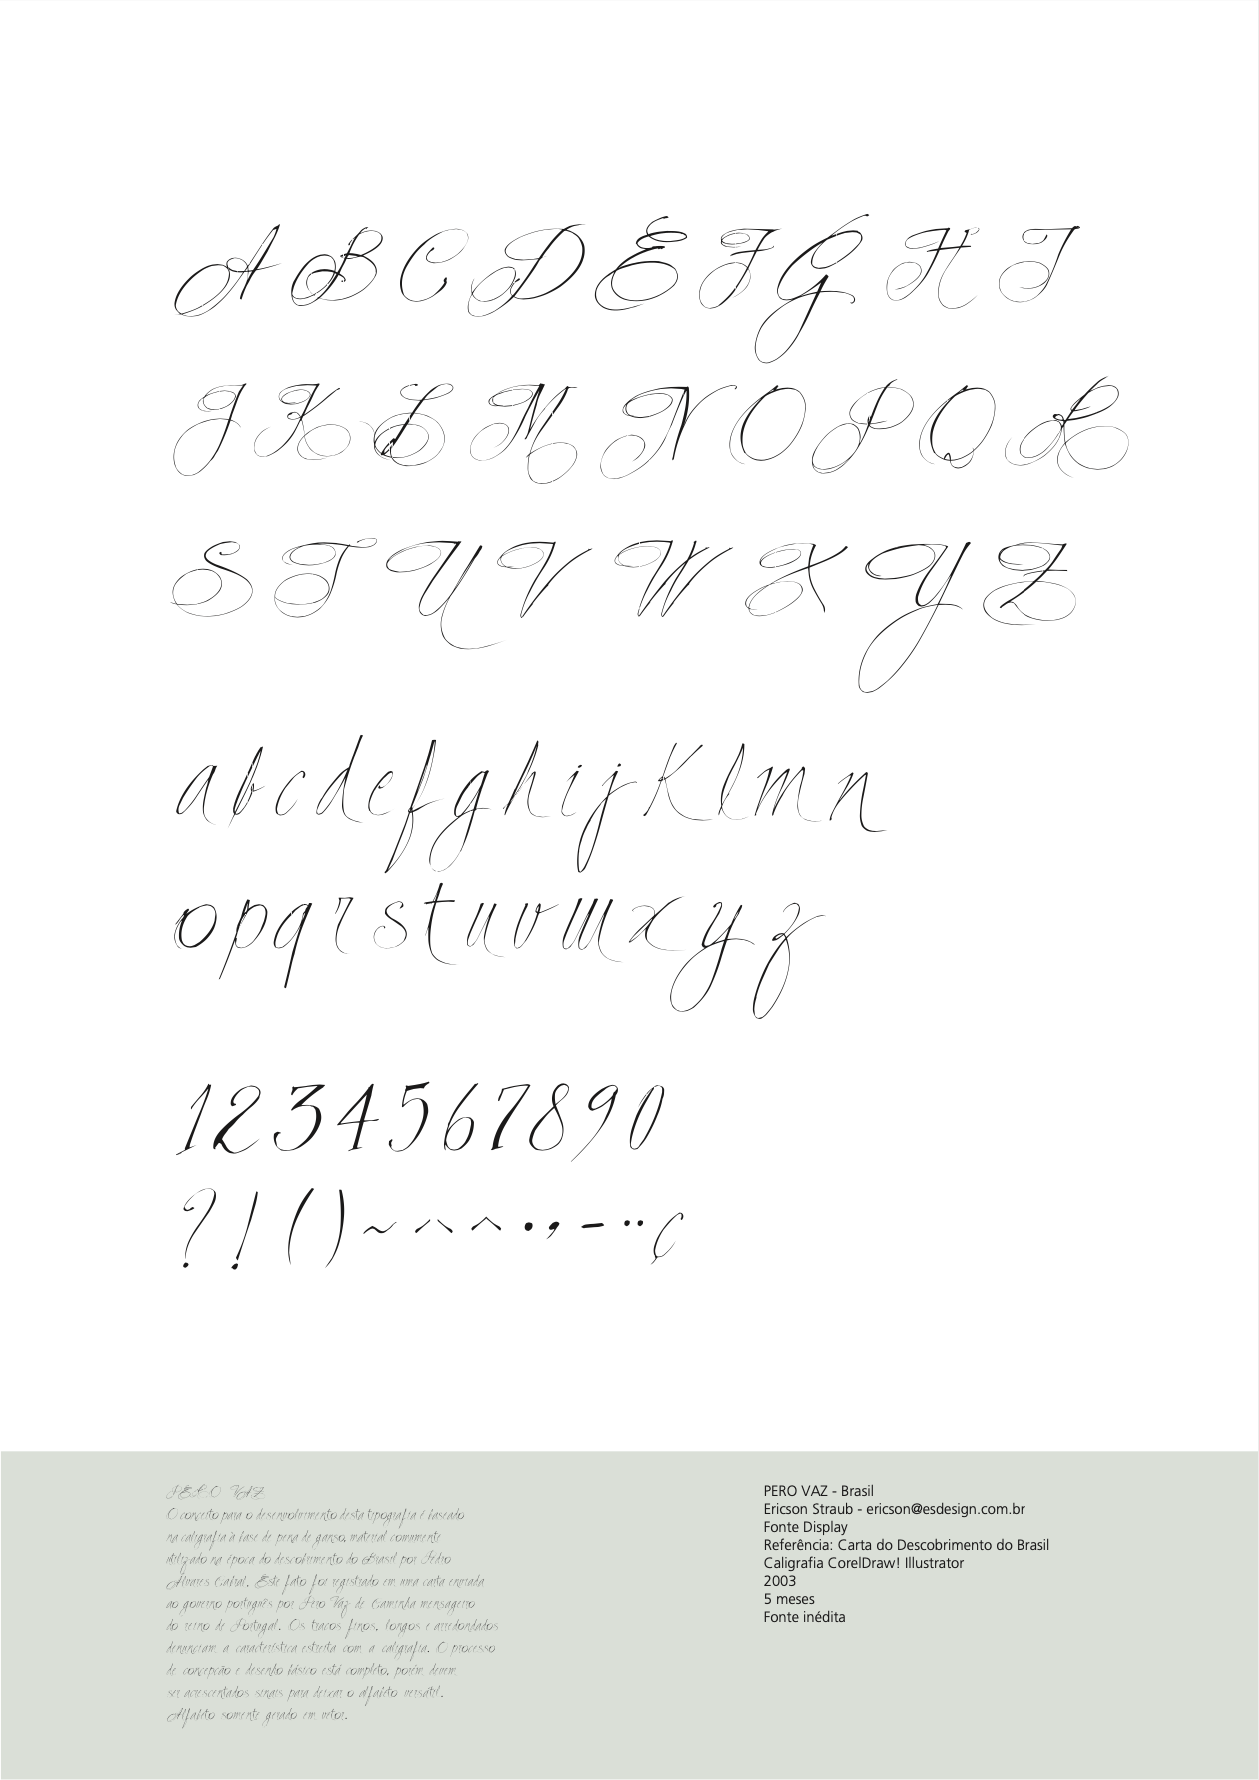 A B C D E F G H I
J K L M N O P Q R
S T U V W X Y Z
a b c d e f g h i j k l m n
o p q r s t u v w x y z
1 2 3 4 5 6 7 8 9 0
? ! ( ) ~ ^ ^ • , - ¨ ç
PERO VAZ
O conceito para o desenvolvimento desta tipografia é baseado
na caligrafia à base de pena de ganso, material comumente
utilizado na época do descobrimento do Brasil por Pedro
Álvares Cabral. Este fato foi registrado em uma carta enviada
ao governo português por Pero Vaz de Caminha mensageiro
do reino de Portugal. Os tracos finos, longos e arredondados
denunciam a característica estreita com a caligrafia. O processo
de concepção e desenho básico está completo, porém devem
ser acrescentados sinais para deixar o alfabeto versátil.
Alfabeto somente gerado em vetor.
PERO VAZ - Brasil
Ericson Straub - ericson@esdesign.com.br
Fonte Display
Referência: Carta do Descobrimento do Brasil
Caligrafia CorelDraw! Illustrator
2003
5 meses
Fonte inédita